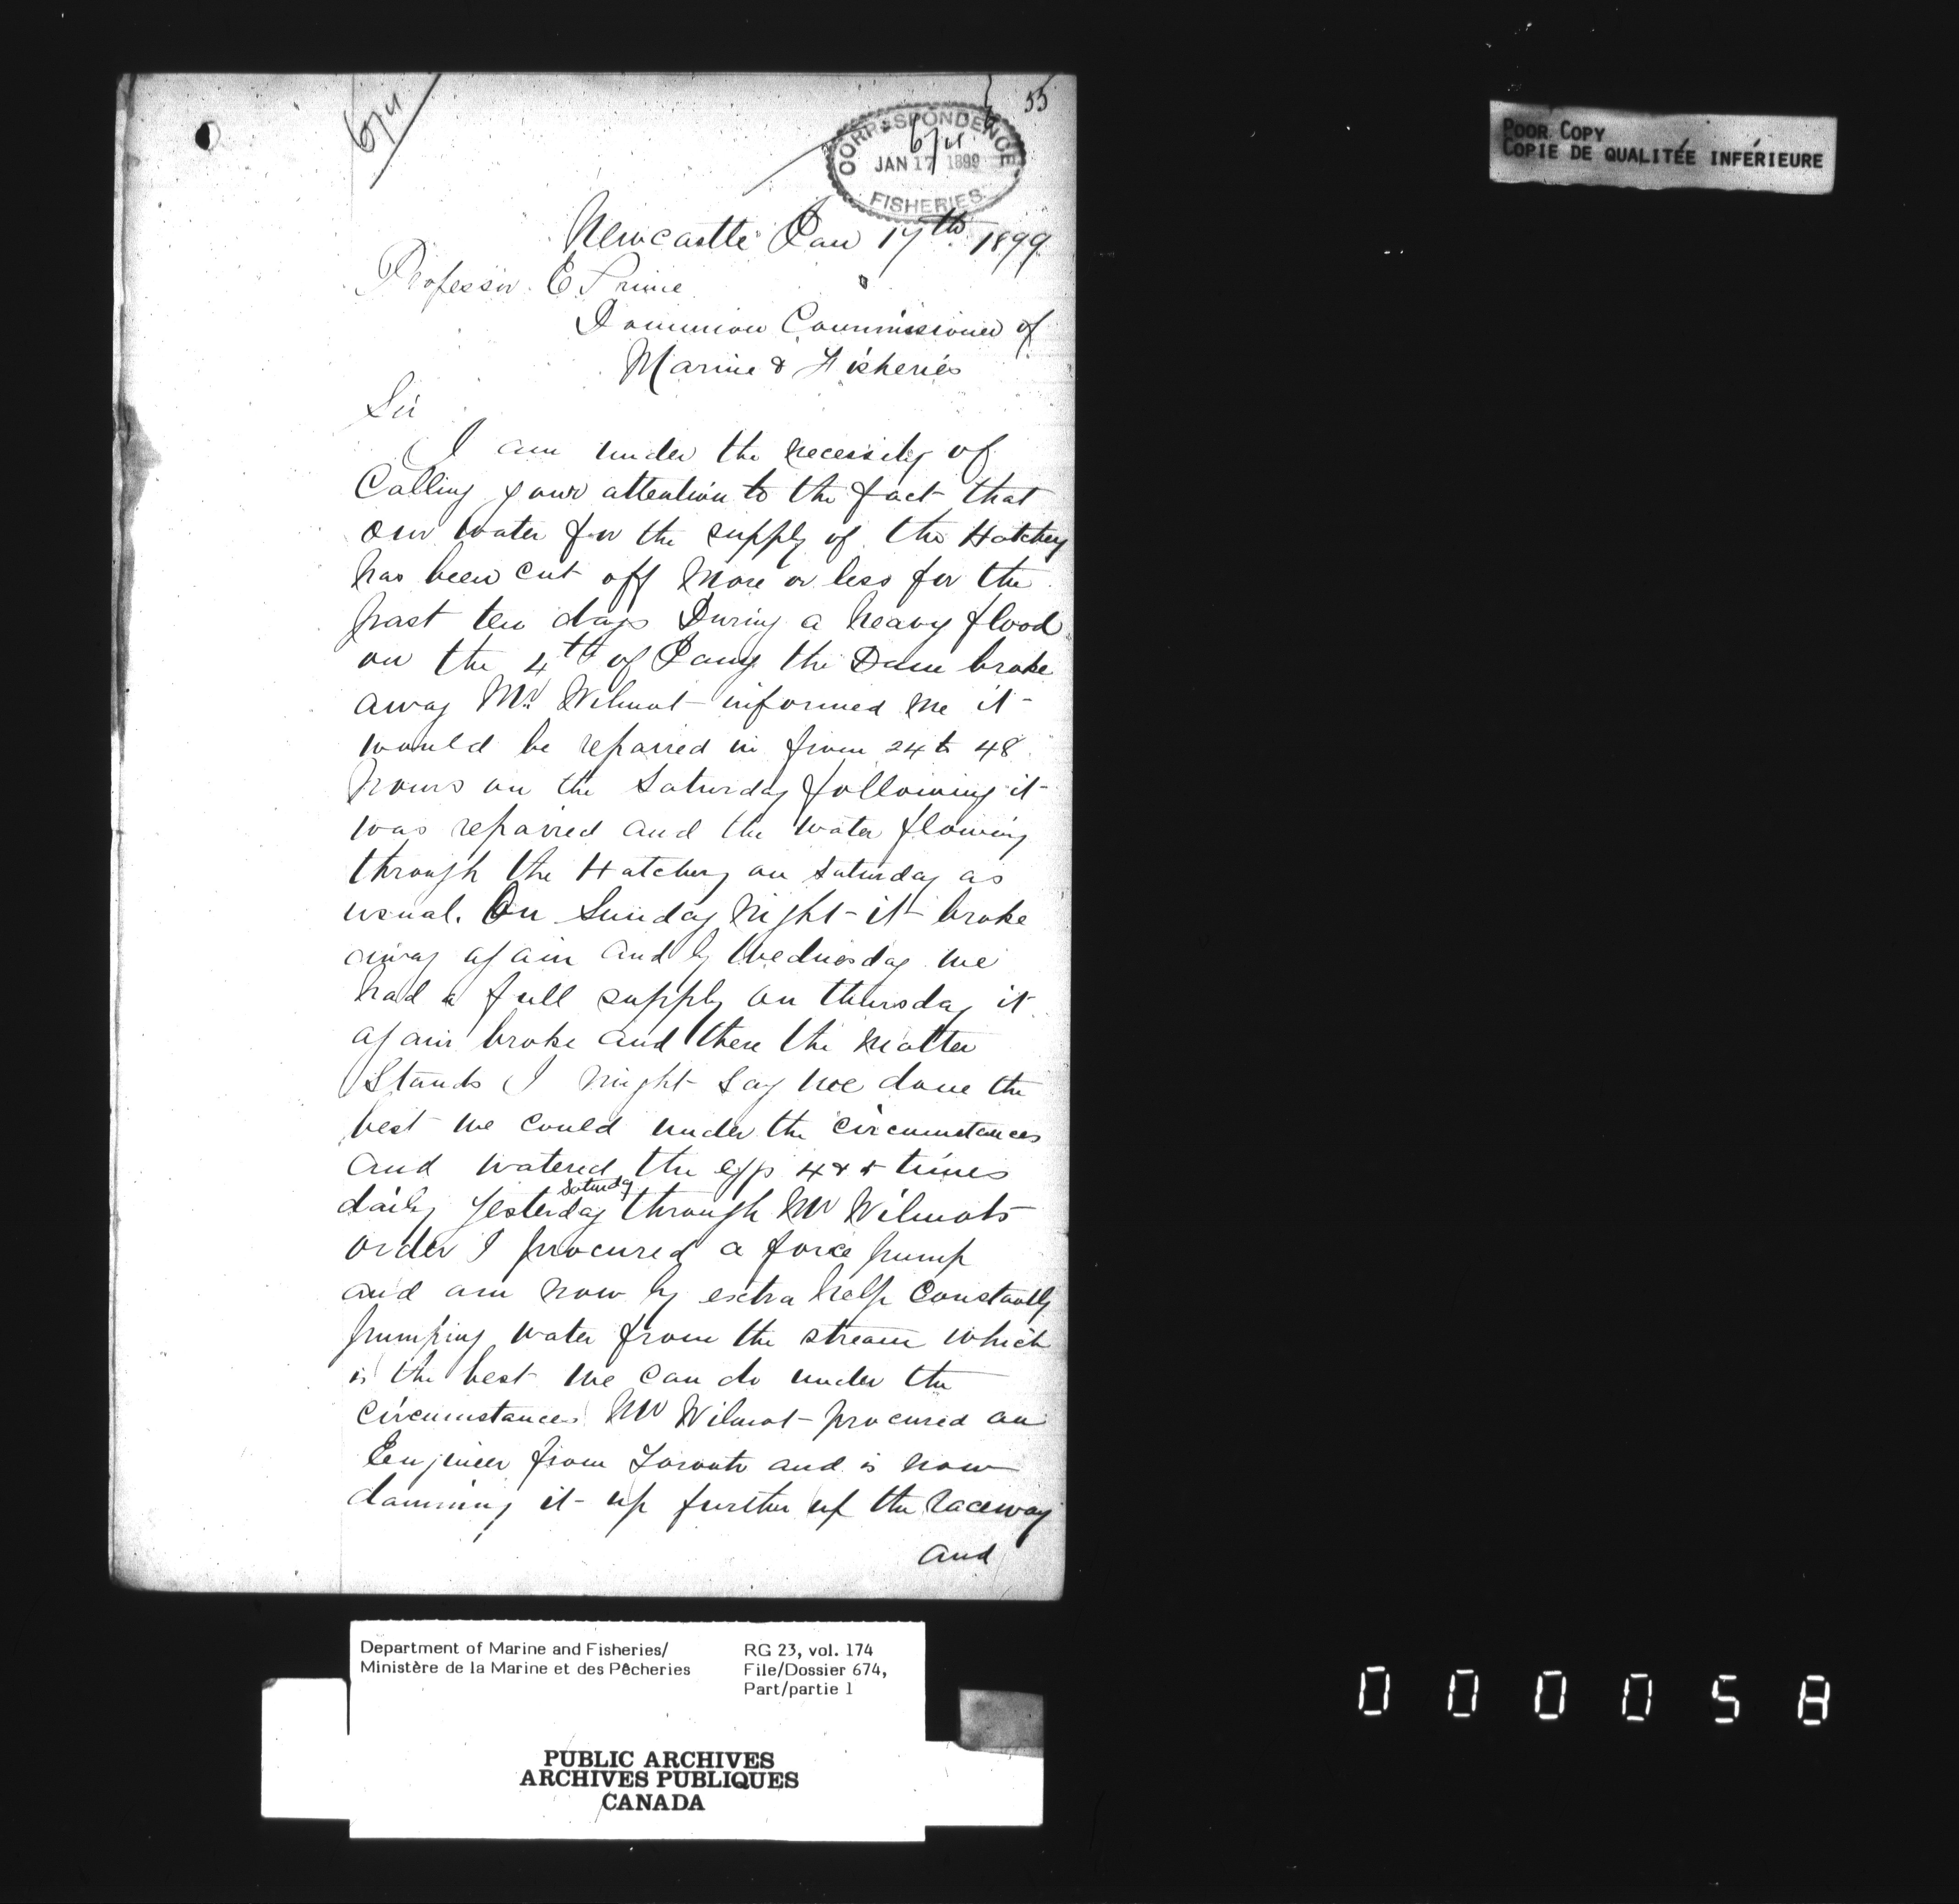 55
6/4
CORRESPONDENCE
6/4
JAN 17 1899
FISHERIES.
POOR COPY
COPIE DE QUALITÉE INFÉRIEURE
Newcastle Jan 17th 1899
Professor E Prince
Dominion Commissioner of
Marine & Fisheries
Sir
I am under the necessity of
Calling your attention to the fact that
our water for the supply of the Hatchery
has been cut off more or less for the
past ten days During a heavy flood
on the 4th of Jany the Dam broke
away Mr Wilmot informed me it
would be repaired in from 24 to 48
hours on the Saturday following it
was repaired and the water flowing
through the Hatchery on Saturday as
usual. On Sunday Night it broke
away again and by Wednesday we
had a full supply on thursday it
again broke and there the matter
Stands I might say we done the
best we could under the circumstances
and watered the eggs 4 & 5 times
saturday
daily yesterday through Mr Wilmots
order I procured a force pump
and am now by extra help Constantly
pumping water from the stream which
is the best we can do under the
circumstances Mr Wilmot procured an
Engineer from Toronto and is now
damming it up further up the raceway
and
Department of Marine and Fisheries/
Ministère de la Marine et des Pêcheries
RG 23, vol. 174
File/Dossier 674,
Part/partie 1
PUBLIC ARCHIVES
ARCHIVES PUBLIQUES
CANADA
000058